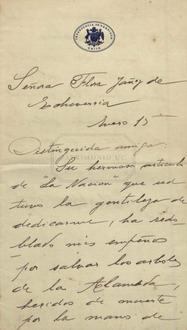 Señora Flor Yáñez de
Echeverria
Enero 15
Distinguida amiga:
Su hermoso artículo
de "La Nación" que ud
tuvo la gentileza de
dedicarme, ha redo-
blado mis empeños
por salvar los árboles
de la Alameda,
heridos de muerte
por la mano de